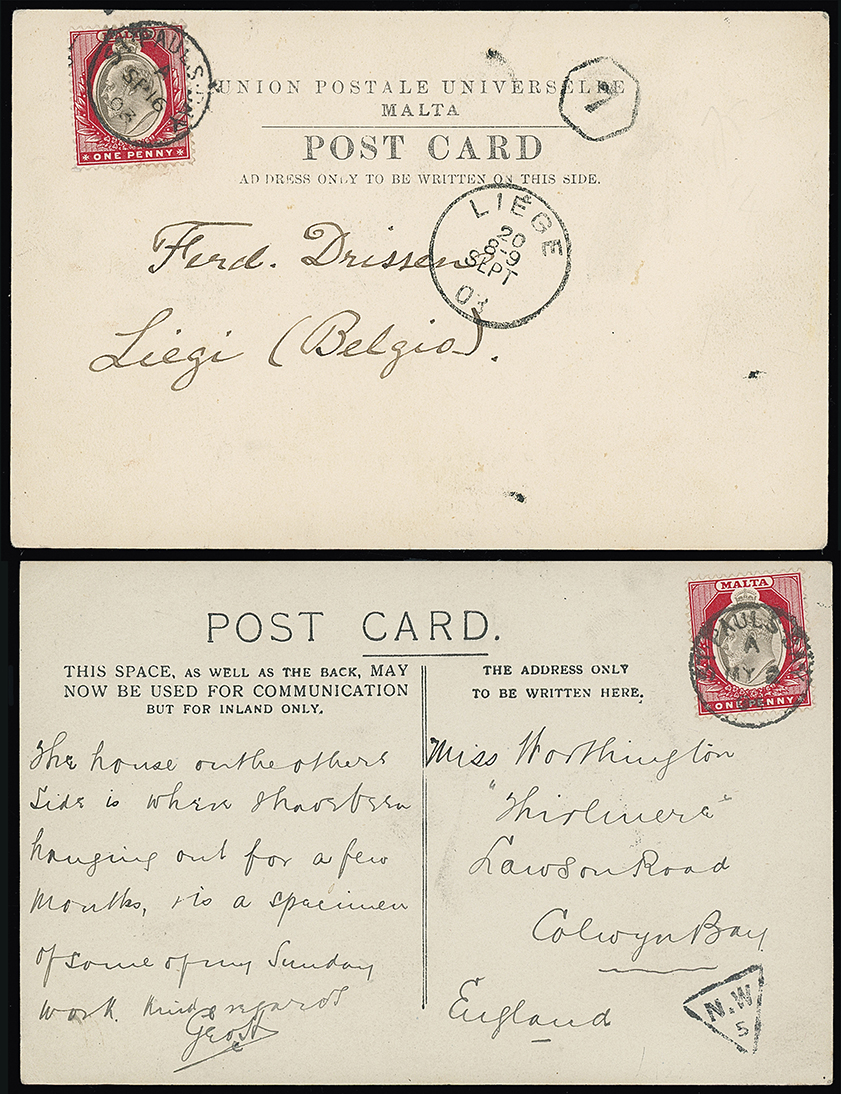 ST. PAULS BAY
A
SP 16
03
* ONE PENNY *
UNION POSTALE UNIVERSELLE
MALTA
POST CARD
ADDRESS ONLY TO BE WRITTEN ON THIS SIDE.
7
LIÉGE
20
8-9
SEPT
03
Ferd. Drissen
Liégi (Belgio).
POST CARD.
THIS SPACE, AS WELL AS THE BACK, MAY
NOW BE USED FOR COMMUNICATION
BUT FOR INLAND ONLY.
The house on the other
side is where I have been
hanging out for a few
months, & is a specimen
of some of my Sunday
work. Kind regards
THE ADDRESS ONLY
TO BE WRITTEN HERE.
MALTA
PAULS BAY
A
MY 2
ONE PENNY
Miss Worthington
"Thirlmere"
Lawson Road
Colwyn Bay
England
N.W
5